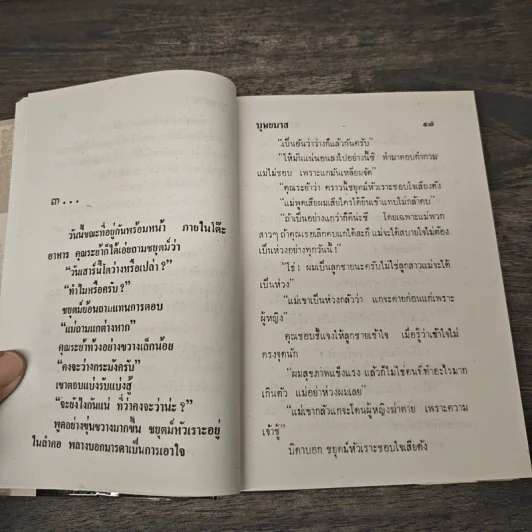 ๓...
วันนี้ขณะที่อยู่กันพร้อมหน้า ภายในโต๊ะ
อาหาร คุณระย้าก็ได้เอ่ยถามชยุตม์ว่า
“วันเสาร์นี้ไตว่างหรือเปล่า ?”
“ทำไมหรือครับ ?”
ชยุตม์ย้อนถามแทนการตอบ
“แม่ถามแกต่างหาก”
คุณระย้าท้วงอย่างขวางเล็กน้อย
“คงจะว่างกระมังครับ”
เขาตอบแบ่งรับแบ่งสู้
“จะยังไงกันแน่ ที่ว่าคงจะว่างน่ะ ?”
พูดอย่างขุ่นขวางมากขึ้น ชยุตม์หัวเราะอยู่
ในลำคอ พลางบอกมารดาเป็นการเอาใจ
บุษยมาส
“เป็นอันว่าว่างก็แล้วกันครับ”
“ให้มันแน่นอนลงไปอย่างนี้ซิ ทำมาตอบคำกวม
แม่ไม่ชอบ เพราะแกมันเหลี่ยมจัด”
คุณระย้าว่า คราวนี้ชยุตม์หัวเราะชอบใจเสียงดัง
“แม่พูดเสียผมเสียใครได้ยินเข้าแทบไม่กล้าคบ”
“ถ้าเป็นอย่างแกว่าก็ดีน่ะซี โดยเฉพาะแม่พวก
สาวๆ ถ้าคุณเธอเลิกคบแกได้ละก็ แม่จะได้สบายใจไม่ต้อง
เป็นห่วงอย่างทุกวันนี้”
“ไฮ้ ! ผมเป็นลูกชายนะครับไม่ใช่ลูกสาวแม่จะได้
เป็นห่วง”
“แม่เขาเป็นห่วงกลัวว่า แกจะตายก่อนแก่เพราะ
ผู้หญิง”
คุณชอบชี้แจงให้ลูกชายเข้าใจ เมื่อรู้ว่าเข้าใจไม่
ตรงจุดนัก
“ผมสุขภาพแข็งแรง แล้วก็ไม่ใช่คนที่ทำอะไรมาก
เกินตัว แม่อย่าห่วงผมเลย”
“แม่เขากลัวแกจะโดนผู้หญิงฆ่าตาย เพราะความ
เจ้าชู้”
บิดาบอก ชยุตม์หัวเราะชอบใจเสียงดัง